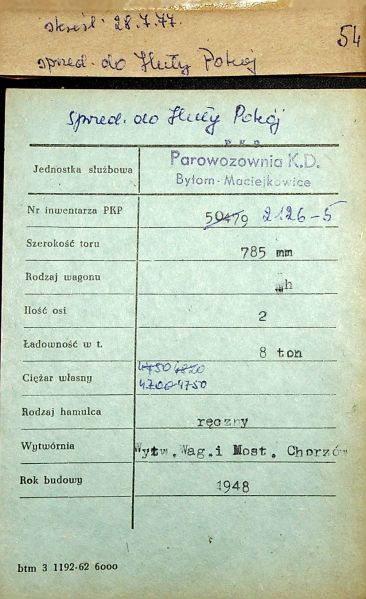 skreśl. 28.7.77.
54
sprzed. do Huty Pokój
Sprzed. do Huty Pokój
P K P
Jednostka służbowa Parowozownia K.D.
Bytom-Maciejkowice
Nr inwentarza PKP 50479 2126-5
Szerokość toru 785 mm
Rodzaj wagonu h
Ilość osi 2
Ładowność w t. 8 ton
Ciężar własny 4750 4820
4700 4750
Rodzaj hamulca ręczny
Wytwórnia Wytw.Wag.i Most. Chorzów
Rok budowy 1948
btm 3 1192-62 6000